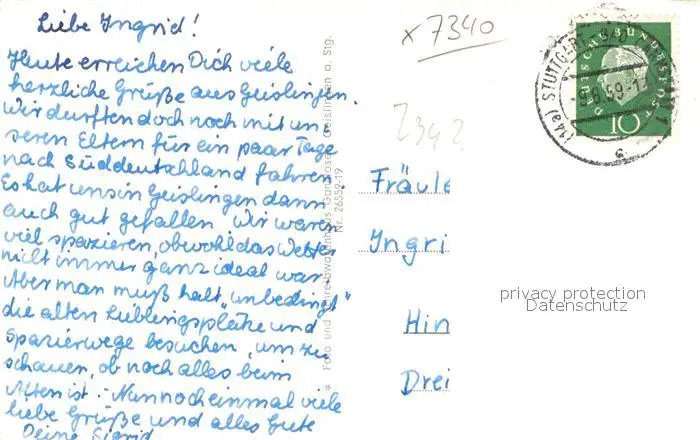 Liebe Ingrid!
Heute erreichen Dich viele
herzliche Grüße aus Geislingen.
Wir durften doch noch mit un-
seren Eltern für ein paar Tage
nach Süddeutschland fahren.
Es hat uns in Geislingen dann
auch gut gefallen. Wir waren
viel spazieren, obwohl das Wetter
nicht immer ganz ideal war.
Aber man muß halt „unbedingt"
die alten Lieblingsplätze und
Spazierwege besuchen, um zu
schauen, ob noch alles beim
Alten ist. - Nun noch einmal viele
liebe Grüße und alles Gute
Deine Sigrid
x 7340
2342
Geislingen a. Stg.
Nr. 26559-19
* Foto und
Fräule
Ingri
Hin
Drei
(14a) STUTTGART
-9.8.59-17
DEUTSCHE BUNDESPOST
10
privacy protection
Datenschutz